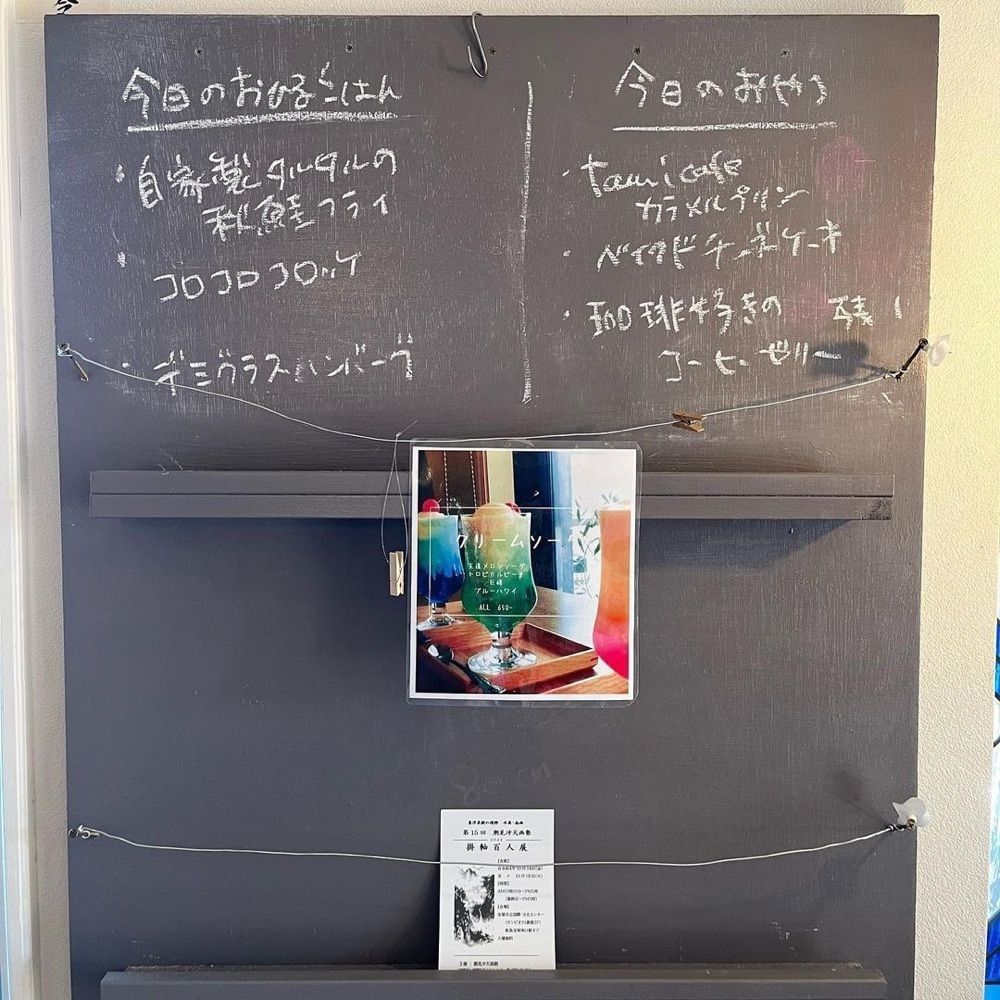 今日のおひるごはん
・自家製タルタルの
秋鮭フライ
・コロコロコロッケ
・デミグラスハンバーグ
今日のおやつ
・tamicafe
カラメルプリン
・ベイクドチーズケーキ
・珈琲好きの
コーヒーゼリー
クリームソーダ
王道メロンソーダ
トロピカルピーチ
巨峰
ブルーハワイ
ALL 650-
第15回 潮見冲天画塾
掛軸百人展
入場無料
主催：潮見冲天画塾